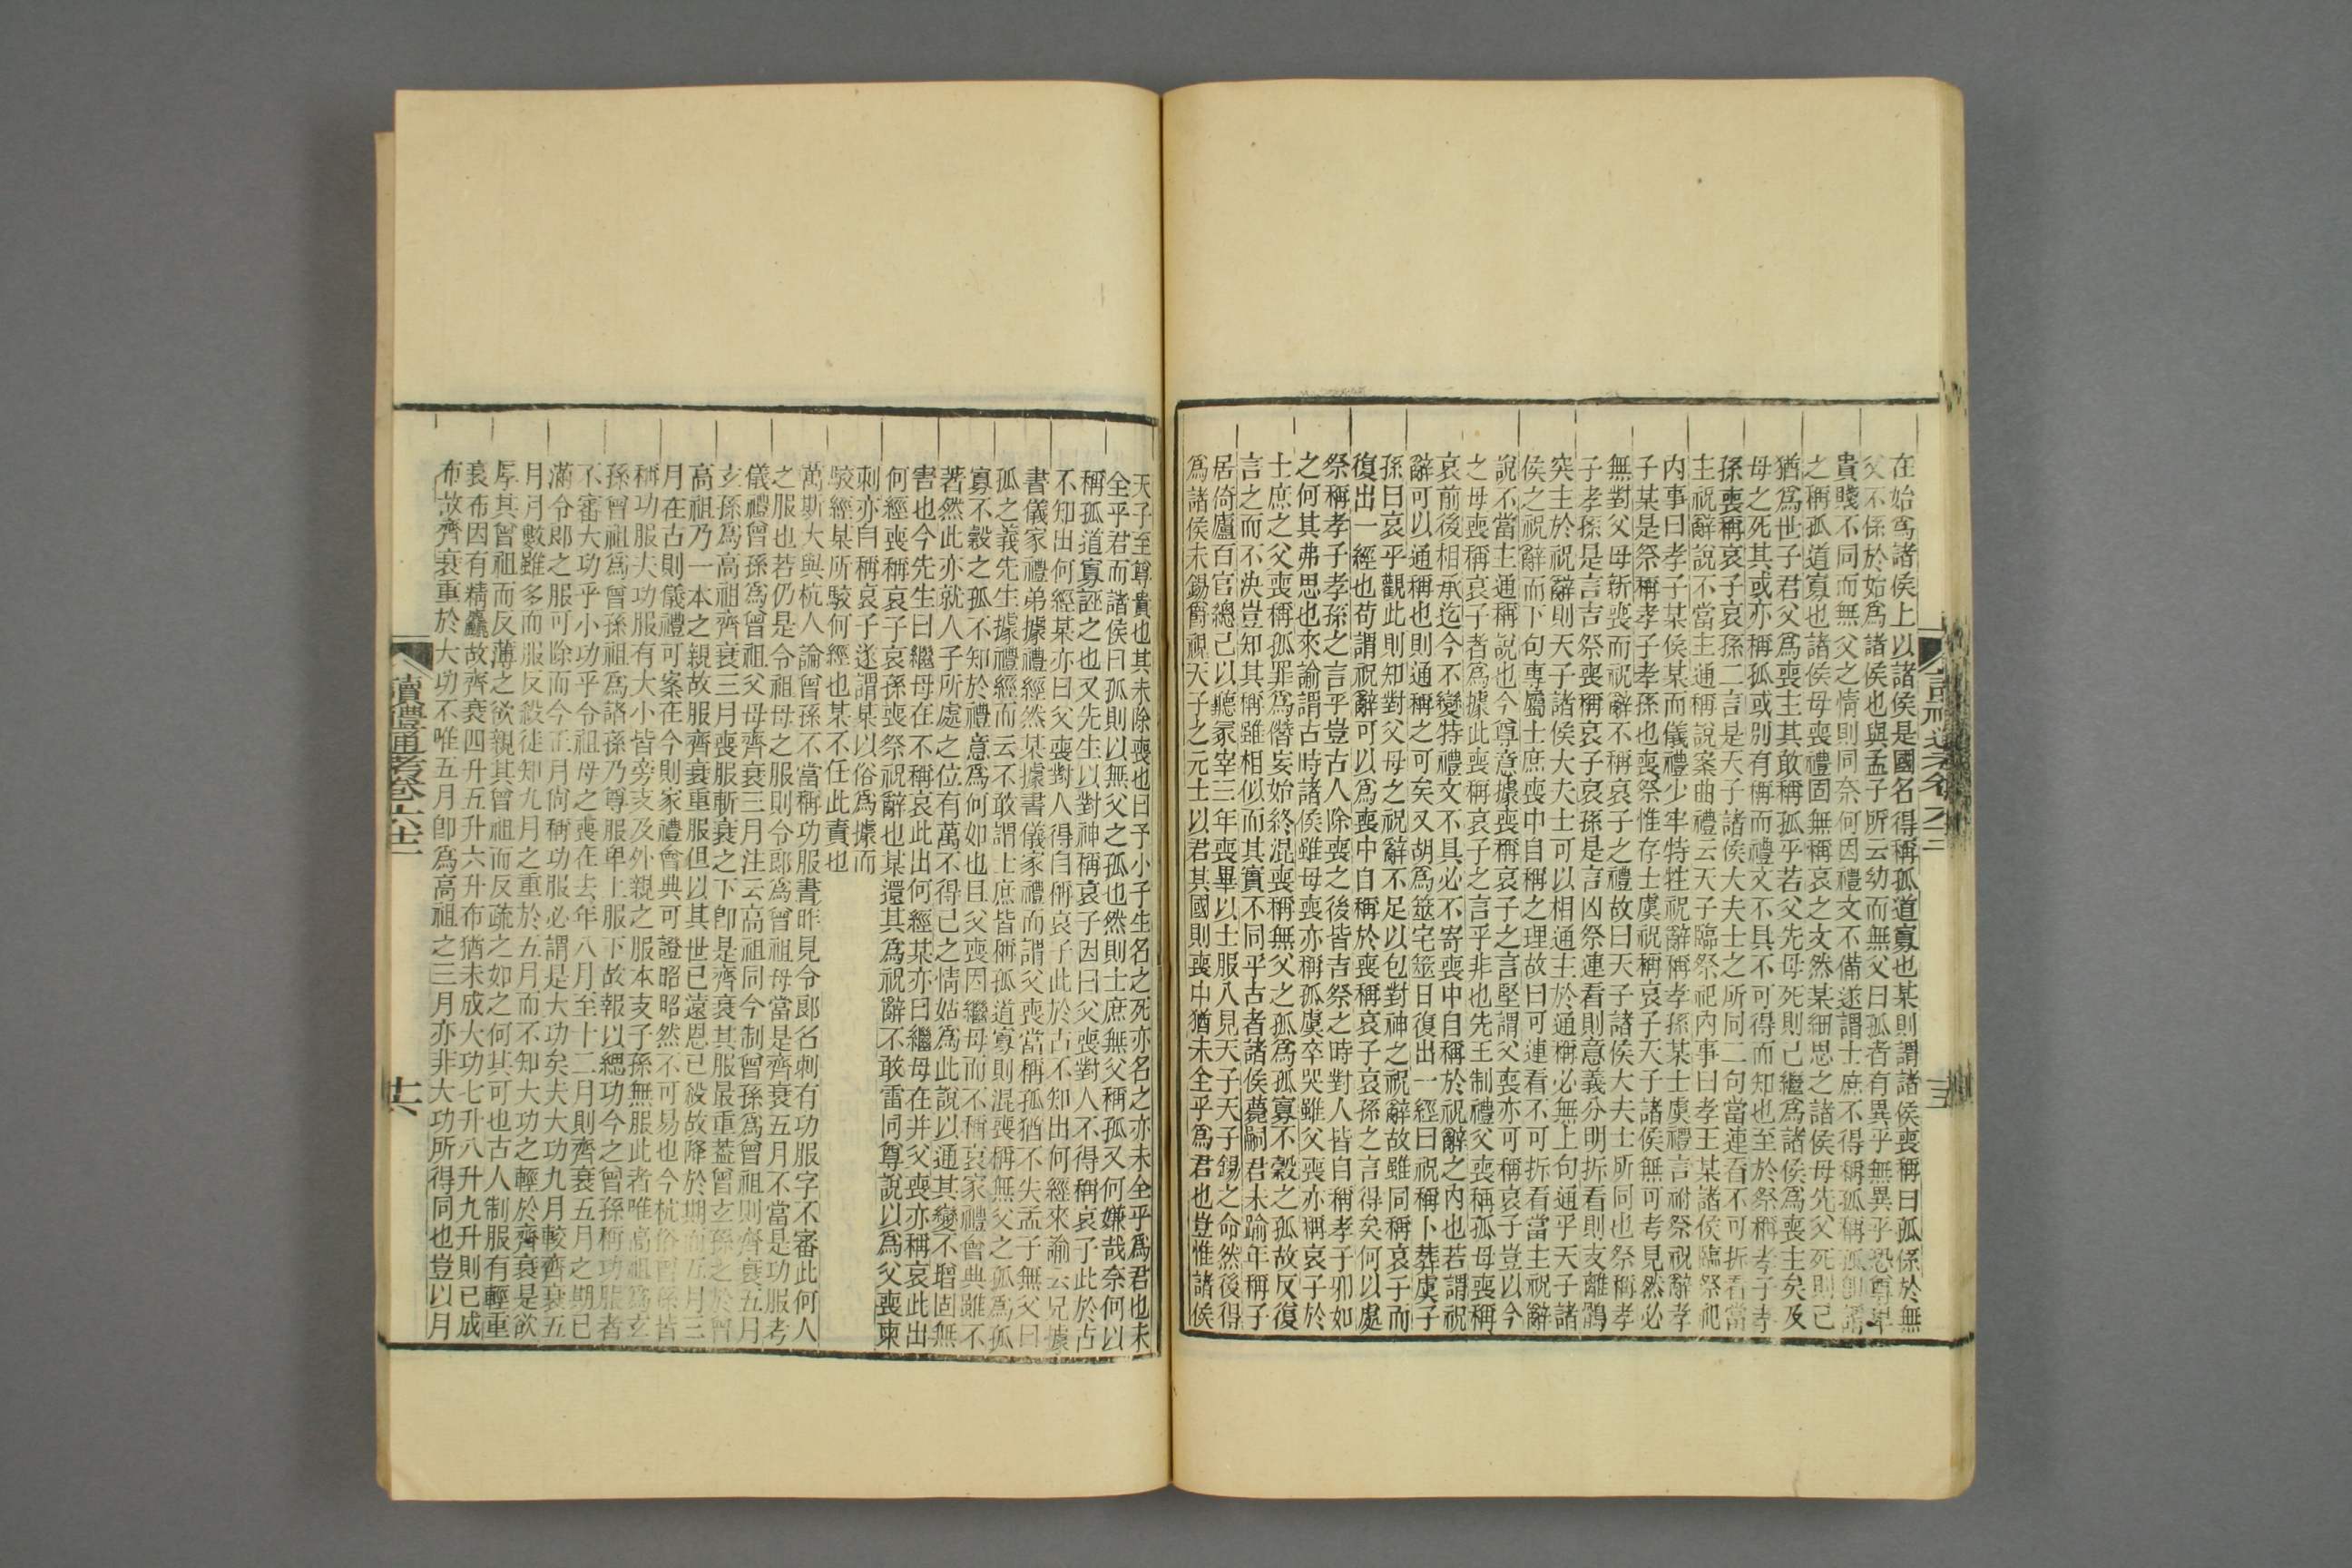 在始爲諸侯上以諸侯是國名得稱孤道寡也某則謂諸侯喪稱曰孤係於無
父不係於始爲諸侯也與孟子所云幼而無父曰孤者有異乎無異乎恐尊卑
貴賤不同而無父之情則同奈何因禮文不備遂謂士庶不得稱孤稱孤卽謂
之稱孤道寡也諸侯母喪禮固無稱哀之文然某細思之諸侯母先父死則已
猶爲世子君父爲喪主其敢稱孤乎若父先母死則己繼爲諸侯爲喪主矣及
母之死其或亦稱孤或別有稱而禮文不具不可得而知也至於祭稱孝子孝
孫喪稱哀子哀孫二言是天子諸侯大夫士之所同二句當連看不可拆看當
主祝辭說不當主通稱說案曲禮云天子臨祭祀內事曰孝王某諸侯臨祭祀
內事曰孝子某侯某而儀禮少牢特牲祝辭稱孝孫某士虞禮言祔祭祝辭孝
子某是祭稱孝子孝孫也喪祭惟存士虞祝稱哀子天子諸侯無可考見然必
無對父母斬喪而祝辭不稱哀子之禮故曰天子諸侯大夫士所同也祭稱孝
子孝孫是言吉祭喪稱哀子哀孫是言凶祭連看則意義分明拆看則支離鶻
突主於祝辭則天子諸侯大夫士可以相通主於通稱必無上句通乎天子諸
侯之祝辭而下句專屬士庶喪中自稱之理故曰可連看不可拆看當主祝辭
說不當主通稱說也今尊意據喪稱哀子之言堅謂父喪亦可稱哀子豈以今
之母喪稱哀子者爲據此喪稱哀子之言乎非也先王制禮父喪稱孤母喪稱
哀前後相承迄今不變特禮文不具必不寄喪中自稱於祝辭之內也若謂祝
辭可以通稱也則通稱之可矣又胡爲筮宅筮日復出一經曰祝稱卜葬虞子
孫曰哀乎觀此則知對父母之祝辭不足以包對神之祝辭故雖同稱哀子而
復出一經也苟謂祝辭可以爲喪中自稱於喪稱哀子哀孫之言得矣何以處
祭稱孝子孝孫之言乎豈古人除喪之後皆吉祭之時對人皆自稱孝子卯如
之何其弗思也來諭謂古時諸侯雖母喪亦稱孤虞卒哭雖父喪亦稱哀子於
士庶之父喪稱孤罪爲僭妄始終混喪稱無父之孤爲孤寡不穀之孤故反復
言之而不決豈知其稱雖相似而其實不同乎古者諸侯薨嗣君未踰年稱子
居倚廬百官總己以聽冢宰三年喪畢以士服入見天子天子錫之命然後得
爲諸侯未錫爵視天子之元士以君其國則喪中猶未全乎爲君也豈惟諸侯
天子至尊貴也其未除喪也曰予小子生名之死亦名之亦未全乎爲君也未
全乎君而諸侯曰孤則以無父之孤也然則士庶無父稱孤又何嫌哉奈何以
稱孤道寡誣之也又先生以對神稱哀子因曰父喪對人不得稱哀子此於古
不知出何經某亦曰父喪對人得自稱哀子此於古不知出何經來諭云兄據
書儀家禮弟據禮經然某據書儀家禮而謂父喪當稱孤猶不失孟子無父曰
孤之義先生據禮經而云不敢謂士庶皆稱孤道寡則混喪稱無父之孤爲孤
寡不穀之孤不知於禮意爲何如也且父喪因繼母而不稱哀家禮會典雖不
著然此亦就人子所處之位有萬不得已之情姑爲此說以通其變不增固無
害也今先生曰繼母在不稱哀此出何經某亦曰繼母在并父喪亦稱哀此出
何經喪稱哀子哀孫喪祭祝辭也某還其爲祝辭不敢雷同尊說以爲父喪柬
刺亦自稱哀子遂謂某以俗爲據而
駮經某所駮何經也某不任此責也
萬斯大與杭人論曾孫不當稱功服書昨見令郞名刺有功服字不審此何人
之服也若仍是令祖母之服則令郞爲曾祖母當是齊衰五月不當是功服考
儀禮曾孫爲曾祖父母齊衰三月注云高祖同今制曾孫爲曾祖則齊衰五月
玄孫爲高祖齊衰三月喪服斬衰之下卽是齊衰其服最重蓋曾玄孫之於曾
高祖乃一本之親故服齊衰重服但以其世已遠恩已殺故降於期而五月三
月在古則儀禮可案在今則家禮會典可證昭昭然不可易也今杭俗曾孫皆
稱功服夫功服有大小皆旁支及外親之服本支子孫無服此者唯高祖爲玄
孫曾祖爲曾孫祖爲諸孫乃尊服卑上服下故報以緦功今之曾孫稱功服者
不審大功乎小功乎令祖母之喪在去年八月至十二月則齊衰五月之期已
滿令郞之服可除而今正月尙稱功服必謂是大功矣夫大功九月較齊衰五
月月數雖多而服反殺徒知九月之重於五月而不知大功之輕於齊衰是欲
厚其曾祖而反薄之欲親其曾祖而反疏之如之何其可也古人制服有輕重
衰布因有精麤故齊衰四升五升六升布猶未成大功七升八升九升則已成
布故齊衰重於大功不唯五月卽爲高祖之三月亦非大功所得同也豈以月
讀禮通考卷六十二
十六